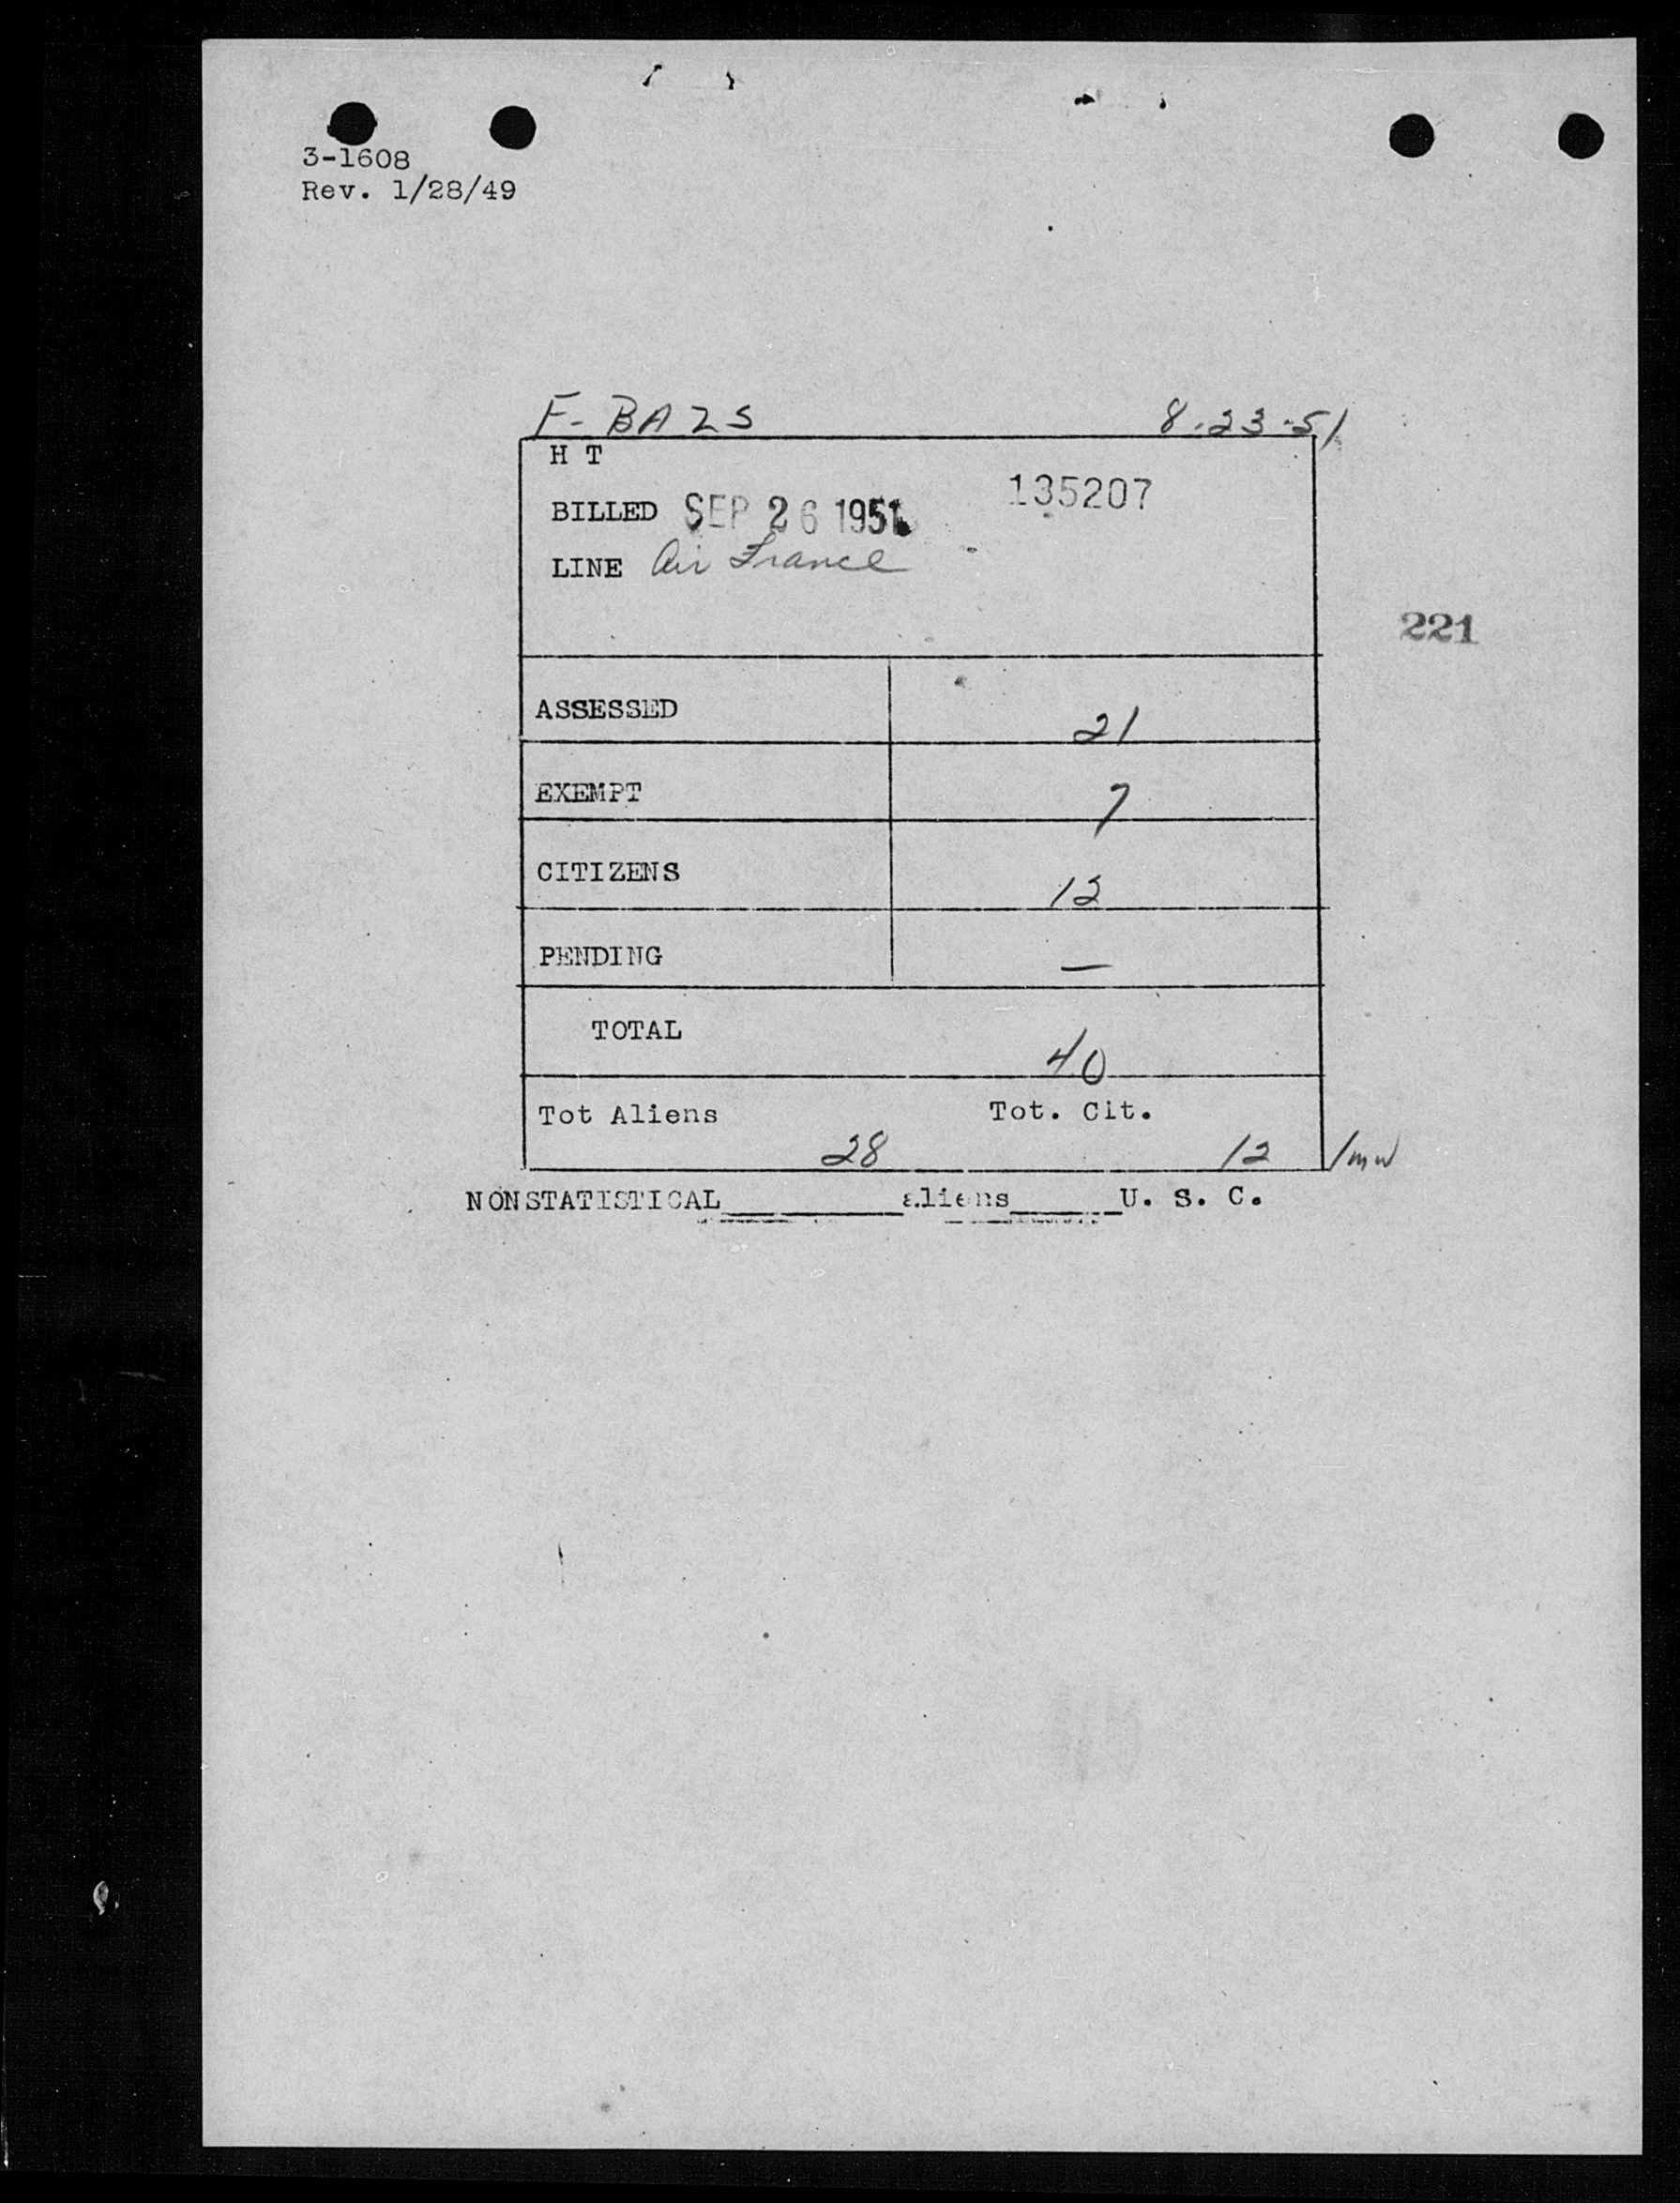 3-1608
Rev. 1/28/49
F-BAZS 8.23.51
H T
135207
BILLED SEP 26 1951
LINE Air France
221
ASSESSED 21
EXEMPT 7
CITIZENS 12
PENDING —
TOTAL 40
Tot Aliens 28 Tot. Cit. 12 /mw
NONSTATISTICAL__________aliens______U. S. C.